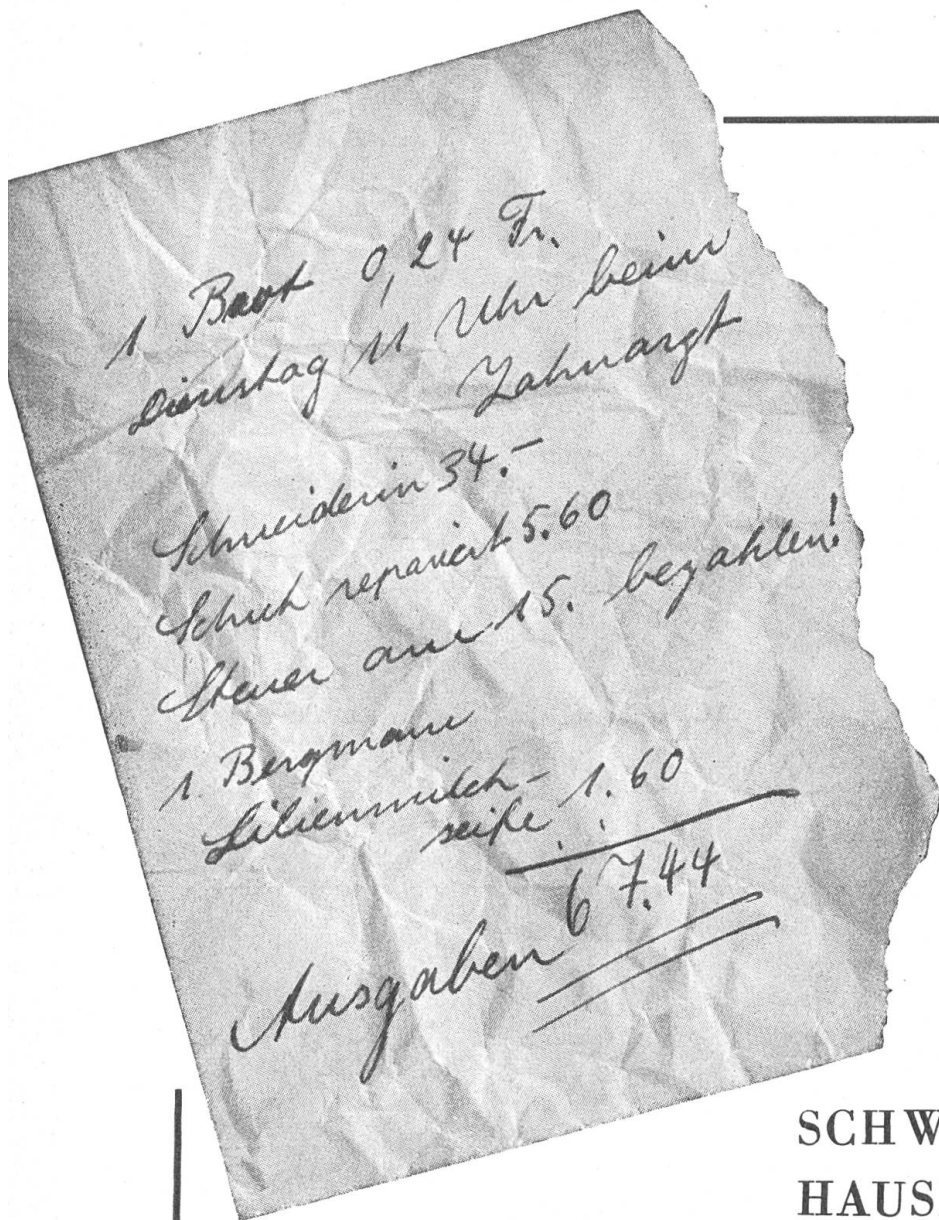 1 Brot 0,24 Fr.
Dienstag 11 Uhr beim
Zahnarzt
Schneiderin 34.-
Schuh repariert 5.60
Steuer am 15. bezahlen!
1. Bergmann
Lilienmilch-
seife 1.60
67.44
Ausgaben
SCHW
HAUS